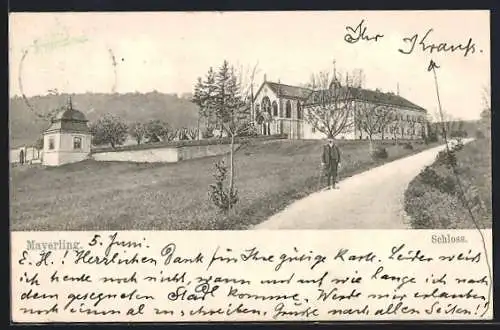 Ihr
Krauss
Mayerling. 5. Juni.
Schloss.
E. H.! Herzlichen Dank für Ihre gütige Karte. Leider weiss
ich heute noch nicht, wann und auf wie lange ich nach
dem gesegneten Stadt komme. Werde mir erlauben
noch einmal zu schreiben. Grüsse nach allen Seiten!